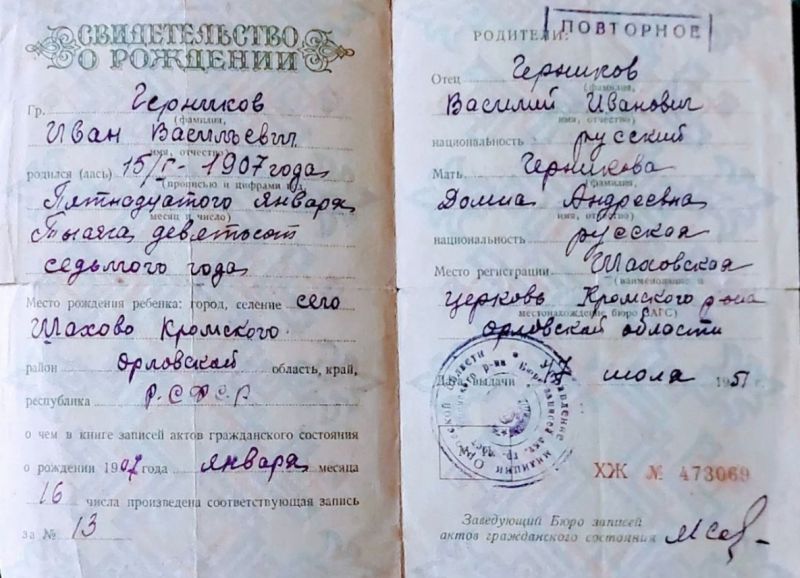 СВИДЕТЕЛЬСТВО
О РОЖДЕНИИ
Гр. Черников
(фамилия,
Иван Васильевич
имя, отчество)
родился (лась) 15/I - 1907 года
(прописью и цифрами год,
Пятнадцатого января
месяц и число)
Тысяча девятьсот
седьмого года
Место рождения ребенка: город, селение село
Шахово Кромского
район Орловской область, край,
республика Р.С.Ф.С.Р
о чем в книге записей актов гражданского состояния
о рождении 1907 года января месяца
16 числа произведена соответствующая запись
за № 13
ПОВТОРНОЕ
РОДИТЕЛИ:
Отец Черников
(фамилия,
Василий Иванович
имя, отчество)
национальность русский
Мать Черникова
(фамилия,
Домна Андреевна
имя, отчество)
национальность русская
Место регистрации Шаховская
(наименование и
церковь Кромского р-она
местонахождение бюро ЗАГС)
Орловской области
Дата выдачи июля 1951 г.
ХЖ № 473069
Заведующий Бюро записей
актов гражданского состояния